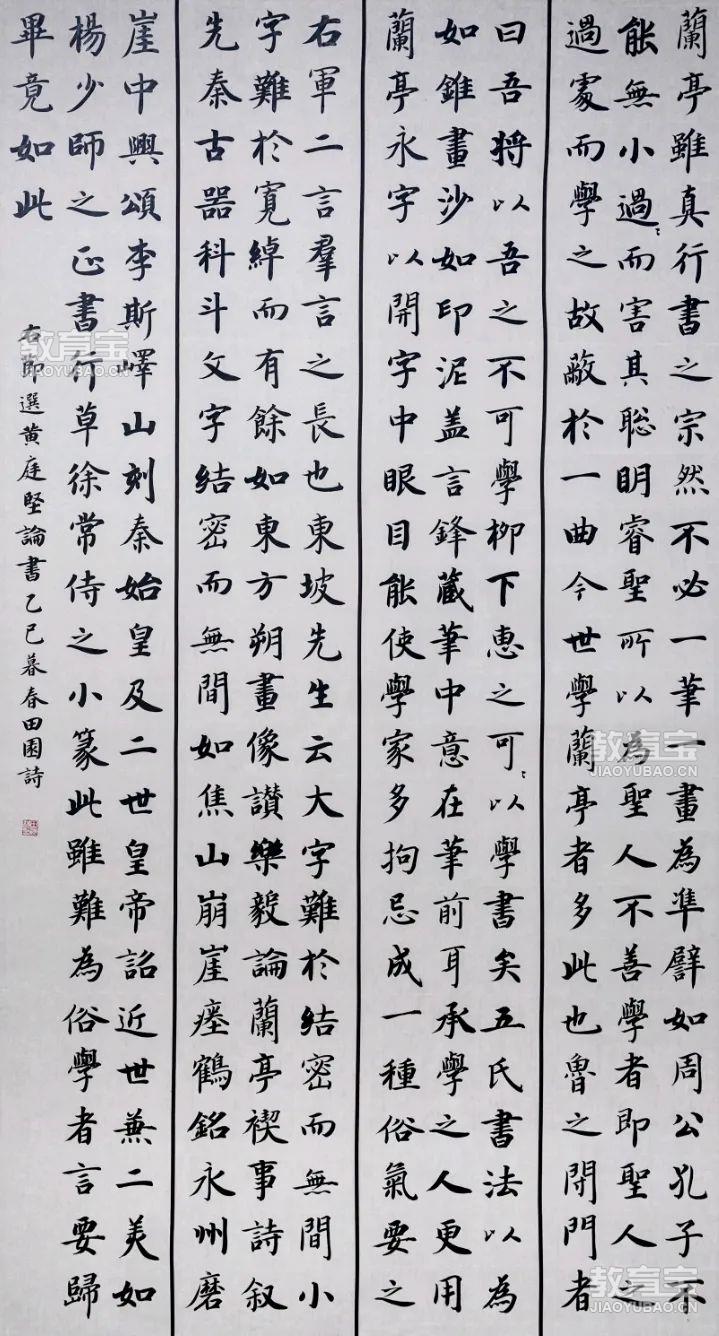 蘭亭雖真行書之宗然不必一筆一畫為準譬如周公孔子不
能無小過過而害其聰明睿聖所以為聖人不善學者即聖人之
過處而學之故蔽於一曲今世學蘭亭者多此也魯之閉門者
曰吾將以吾之不可學柳下惠之可可以學書矣五氏書法以為
如錐畫沙如印泥盖言鋒藏筆中意在筆前耳承學之人更用
蘭亭永字以開字中眼目能使學家多拘忌成一種俗氣要之
右軍二言羣言之長也東坡先生云大字難於結密而無間小
字難於寬綽而有餘如東方朔畫像讃樂毅論蘭亭禊事詩叙
先秦古器科斗文字結密而無間如焦山崩崖瘞鶴銘永州磨
崖中興頌李斯嶧山刻秦始皇及二世皇帝詔近世兼二美如
楊少師之正書行草徐常侍之小篆此雖難為俗學者言要歸
畢竟如此
右節選黄庭堅論書乙巳暮春田園詩
教育宝
JIAOYUBAO.CN
教育宝
JIAOYUBAO.CN
教育宝
JIAOYUBAO.CN